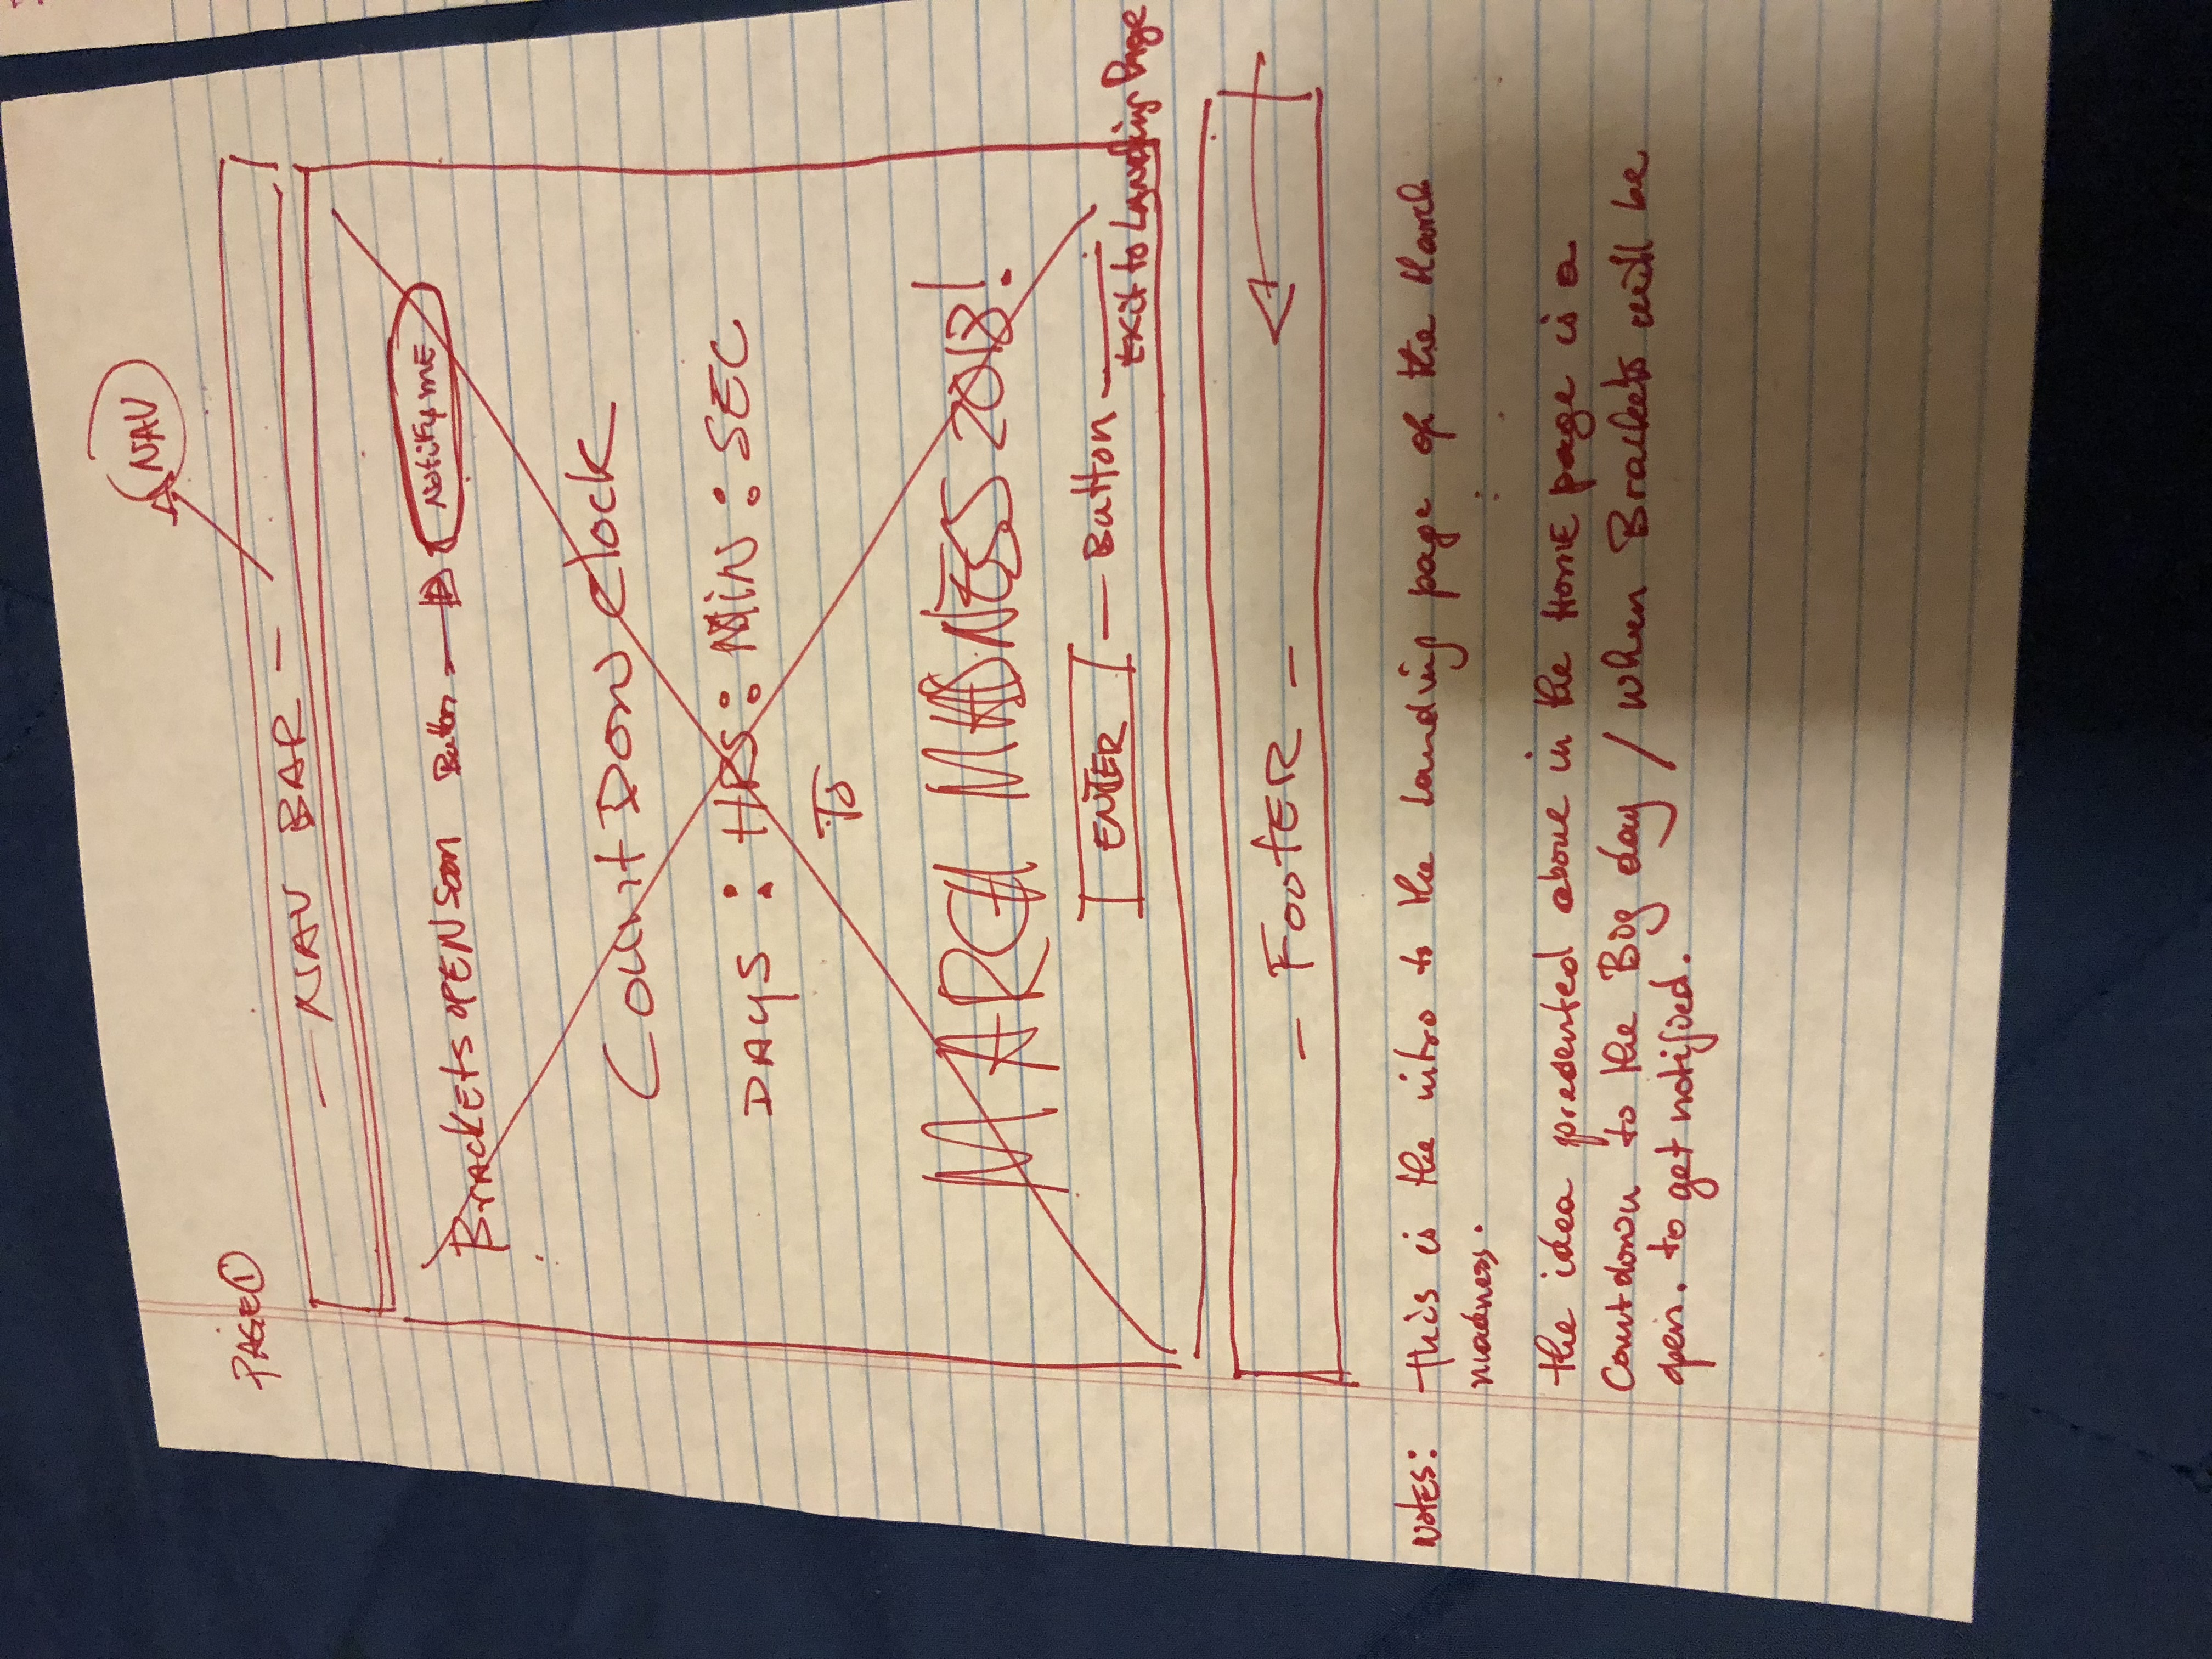 NAV
PAGE 1
- NAV BAR -
Brackets OPEN Soon Button Notify mE
Count Down Clock
DAYS : HRS : MIN : SEC
To
MARCH MADNESS 2018!
ENTER - Button - Exit to Landing Page
- FootER -
Notes: this is the intro to the Landing page of the March
madness.
the idea presented above in the HomE page is a
Countdown to the Big day / when Brackets will be
open. to get notified.